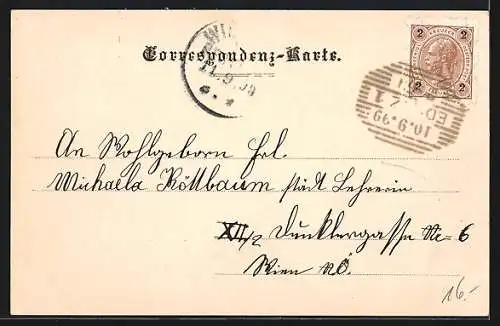 Correspondenz-Karte.
WI
11.9.99
2 2
2 2
10.9.99
An Wohlgeborn Frl.
Michaela Röttbaum städt Lehrerin
XII/2 Dunklergasse No 6
Wien NÖ.
16.-